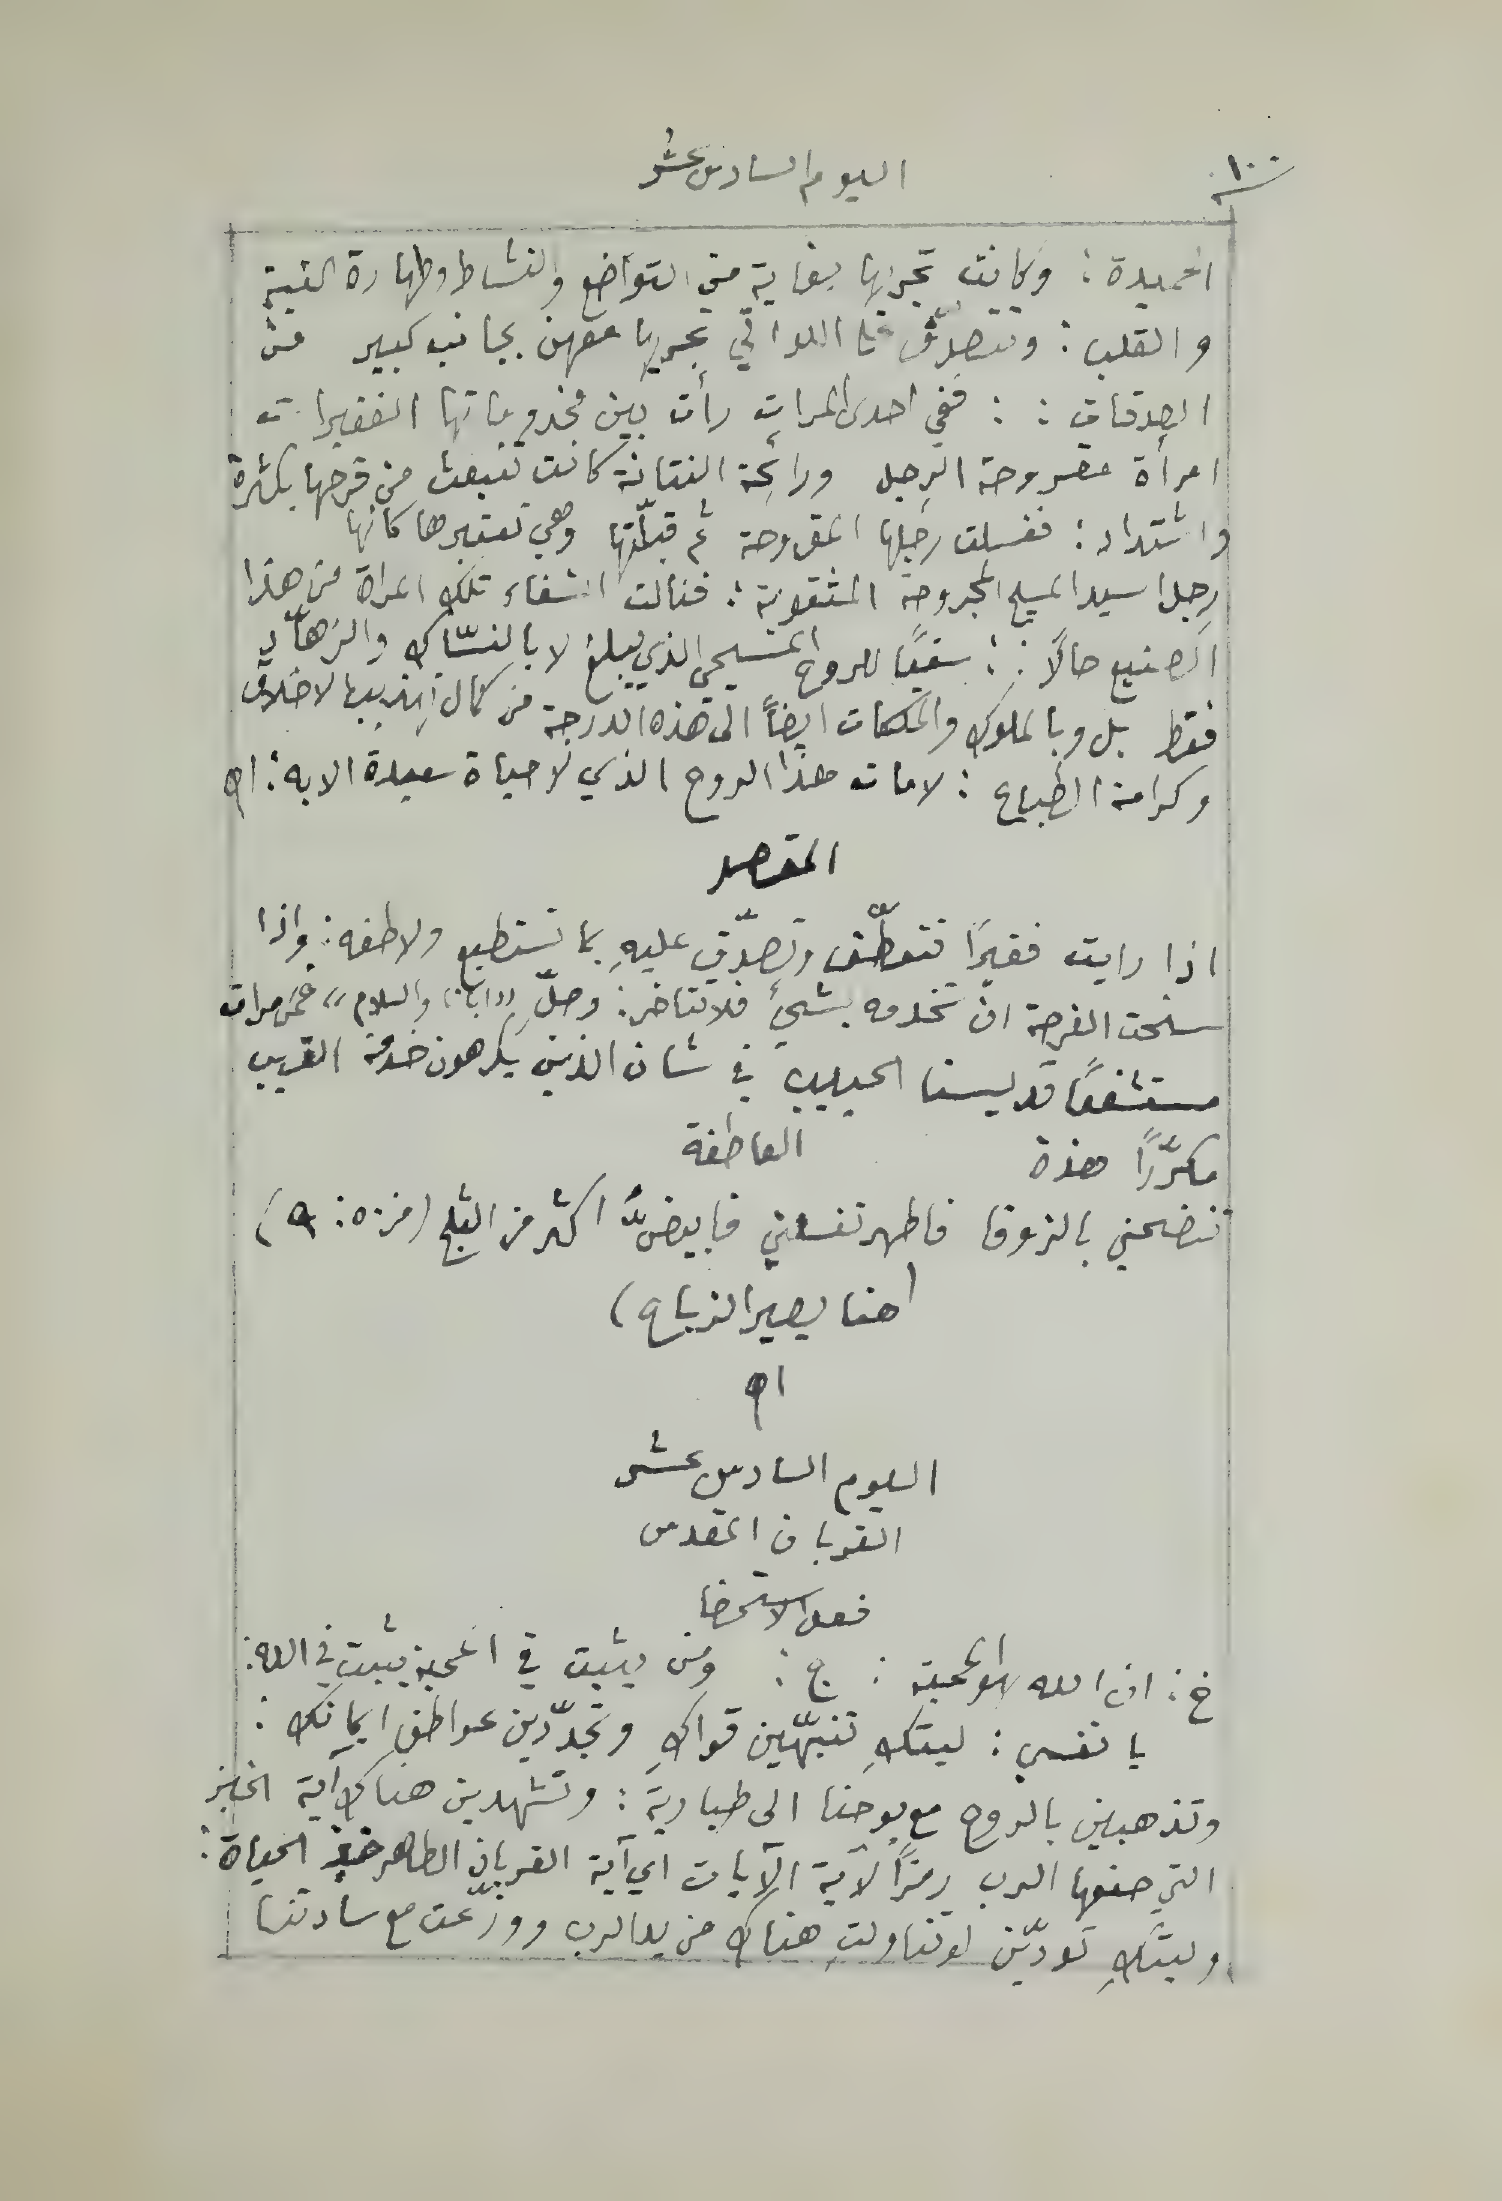 ١٠٠
اليوم السادس عشر
الحميدة : وكانت تجريها بغاية من التواضع والنشاط وطهارة النية
والقلب : وتتصدّق على اللواتي تجريها معهن بجانب كبير من
الصدقات : : ففي احدى المرات رأت بين مخدوماتها الفقيرات
امرأة مقروحة الرجل ورائحة النتانة كانت تنبعث من قرحها بكثرة
واشتداد : فغسلت رجلها المقروحة ثم قبّلتها وهي تعتبرها كانها
رجل السيد المسيح المجروحة المثقوبة : فنالت الشفاء تلك المراة من هذا
الصنيع حالاً : : سقيًا للروح المسيحي الذي يبلغ لا بالنسّاك والزهاّد
فقط بل وبالملوك والملكات ايضاً الى هذه الدرجة من كمال تهذيب الاخلاق
وكرامة الطباع : لامات هذا الروح الذي لا حياة سعيدة الا به : اه
المقصد
اذا رايت فقيرًا فتعطّف وتصدّق عليهِ بما تستطيع ولاطفه : واذا
سنحت الفرصة ان تخدمه بشيءٍ فلا تتاخر : وصلِّ «ابانا والسلام» خمس مرات
مستشفعًا قديسنا الحبيب في شان الذين يكرهون خدمة القريب
مكرّرًا هذه العاطفة
تنضحني بالزوفا فاطهر تغسلني فابيضُّ اكثر من الثلج (مز ٥٠ : ٩)
(هنا يصير الزياح)
اه
اليوم السادس عشر
القربان المقدس
فعل الاستحضا
خ : ان الله هو المحبة : ج : ومن يثبت في المحبة يثبت في الله :
يا نفسي : ليتكِ تنبهّين قواكِ وتجدّدين عواطف ايمانك :
وتذهبين بالروح مع يوحنا الى طبارية : وتشهدين هناك آية الخبز
التي صنعها الرب رمزًا لآية الآيات اي آية القربان الطاهر خبز الحياة :
وليتكِ تودّين لو تناولتِ هناك من يد الرب ووزّعت مع سادتنا